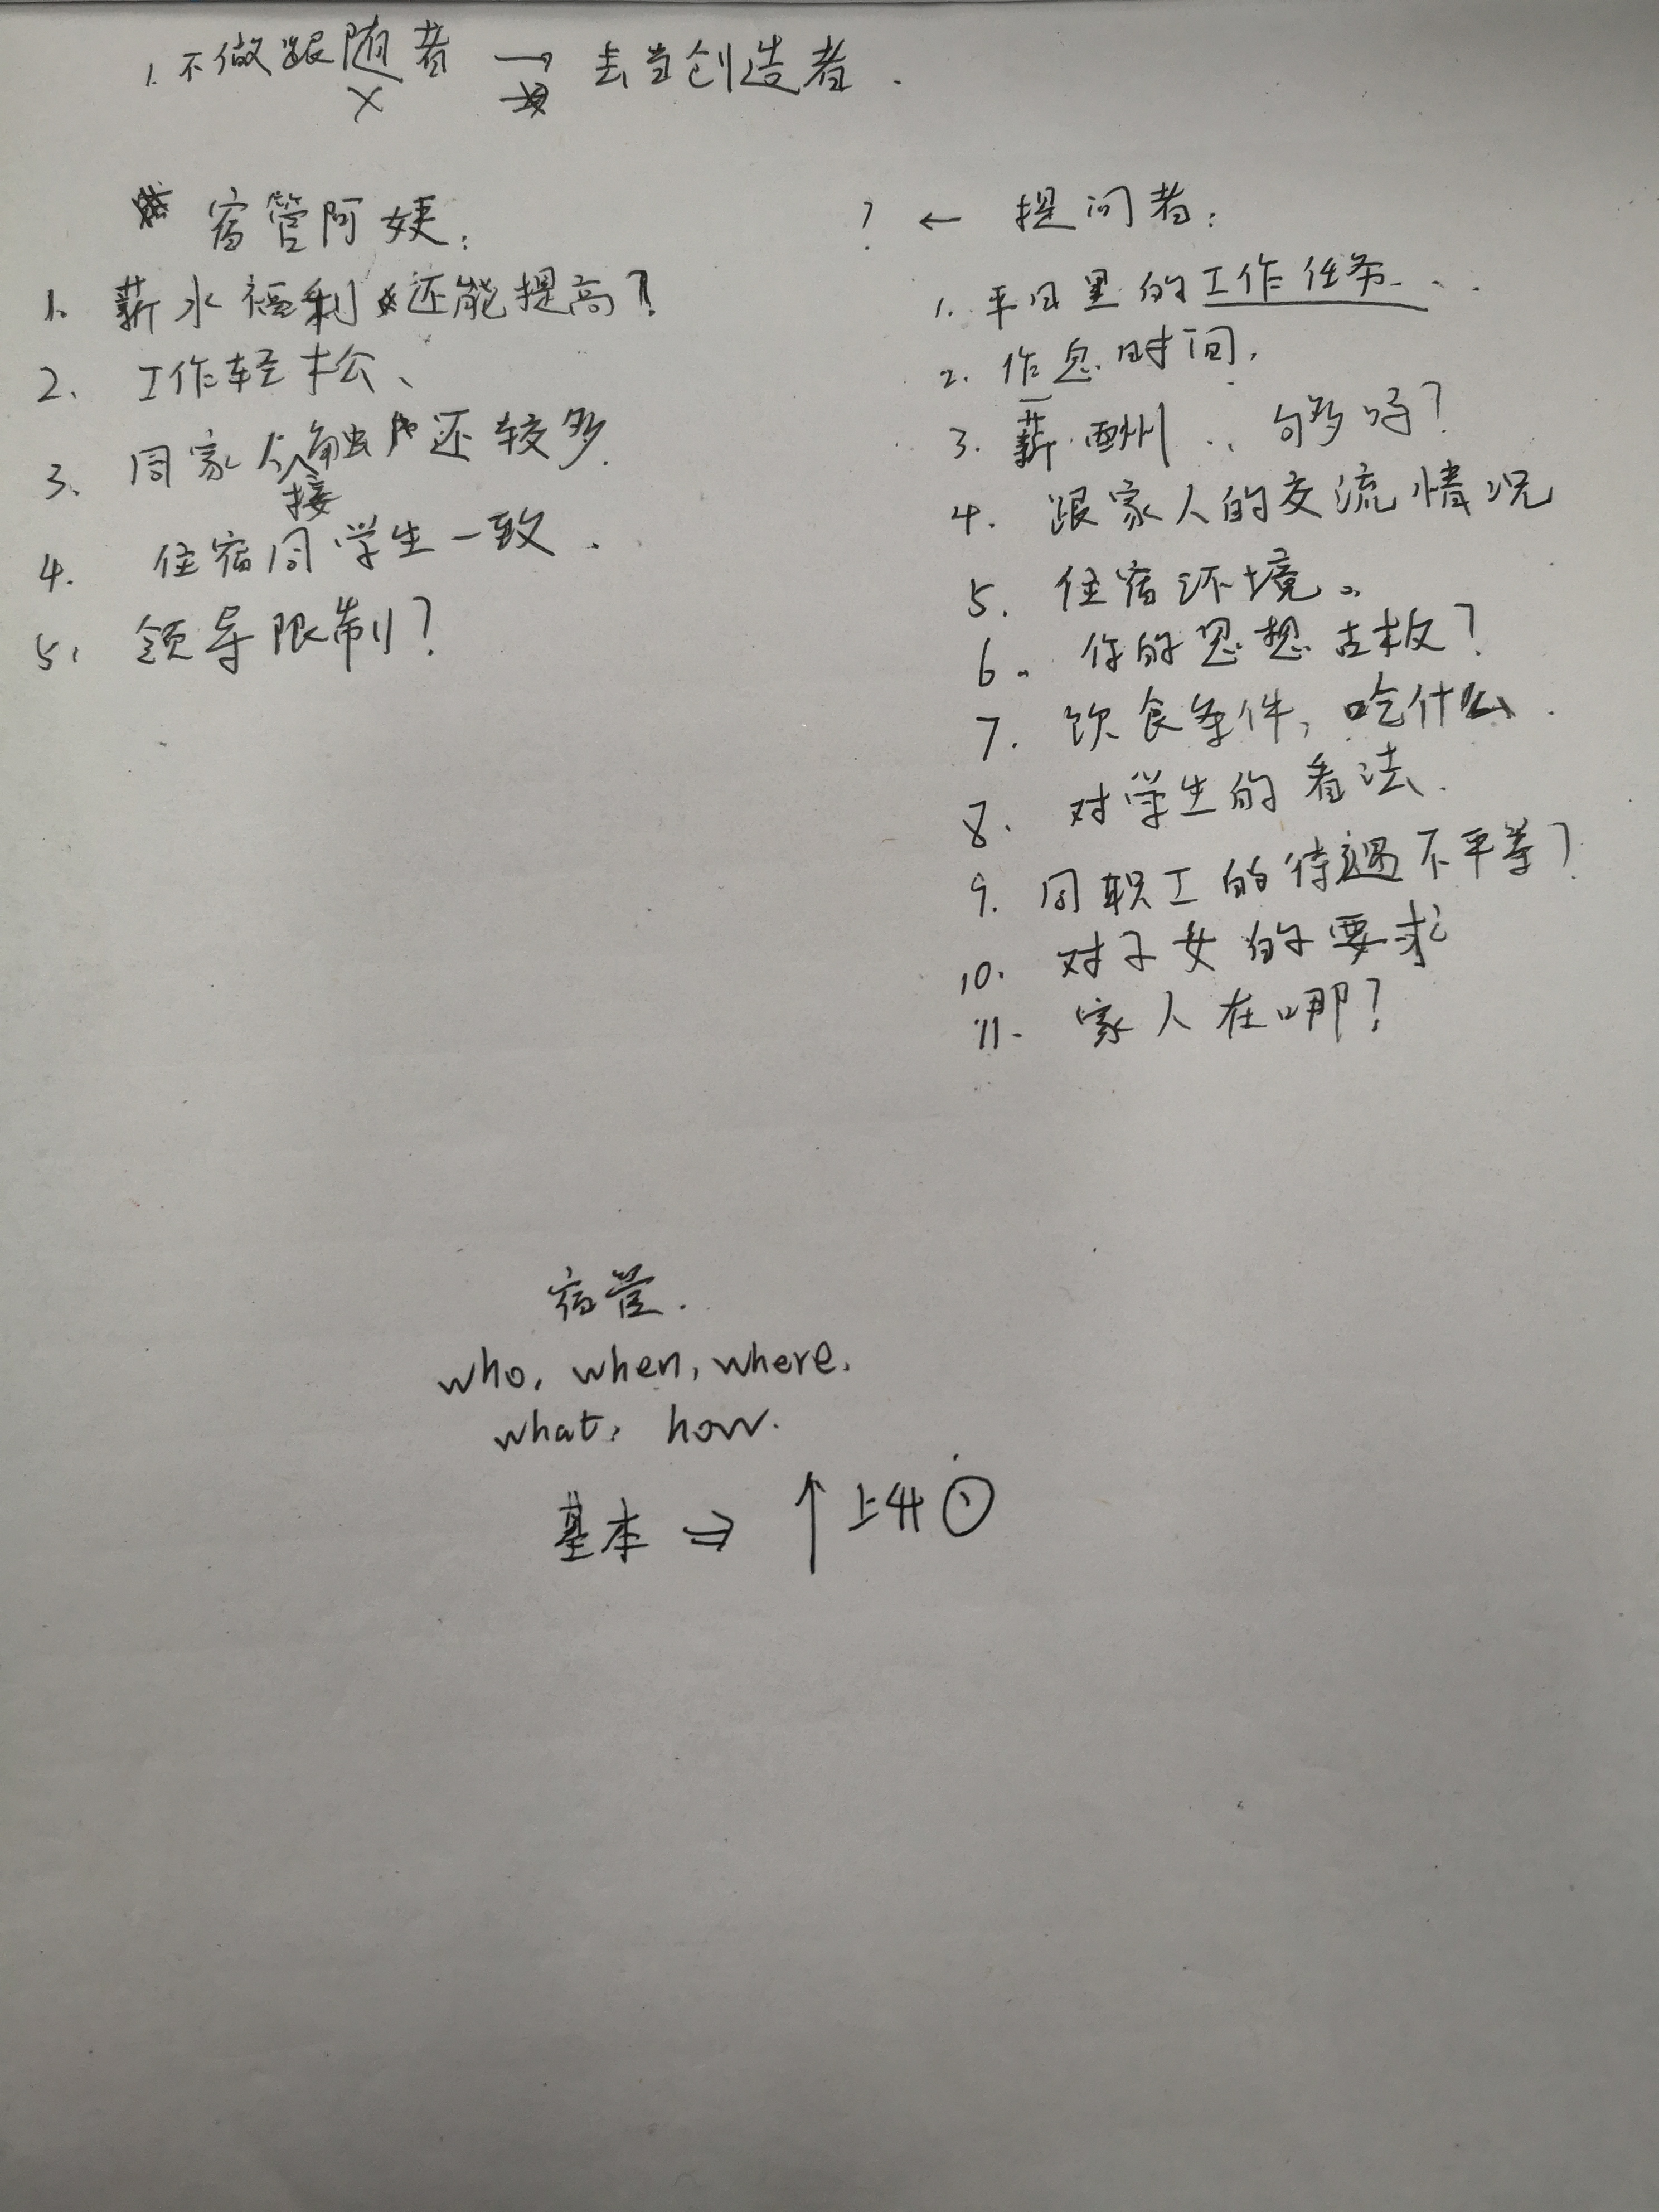 1. 不做跟随者 → 去当创造者.
×
宿管阿姨:
1. 薪水福利还能提高?
2. 工作轻松、
3. 同家人接触还较多.
4. 住宿同学生一致.
5. 领导限制?
? ← 提问者:
1. 平日里的工作任务...
2. 作息时间.
3. 薪酬.. 句多吗?
4. 跟家人的交流情况
5. 住宿环境。
6. 你的思想古板?
7. 饮食条件, 吃什么.
8. 对学生的看法.
9. 同职工的待遇不平等?
10. 对子女的要求
11. 家人在哪?
宿管.
who, when, where.
what, how.
基本 ⇒ ↑上升